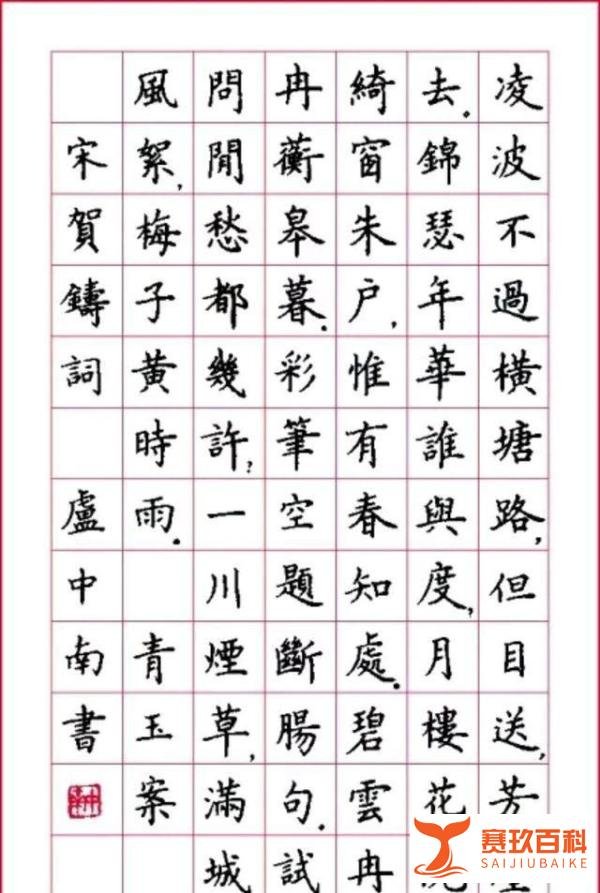 凌波不過橫塘路,但目送,芳
去。錦瑟年華誰與度,月樓花
綺窗朱户,惟有春知處。碧雲冉
冉蘅皋暮。彩筆空題斷腸句。試
問閒愁都幾許?一川煙草,滿城
風絮,梅子黃時雨。 青玉案
宋賀鑄詞 盧中南書
赛玖百科
SAIJIUBAIKE